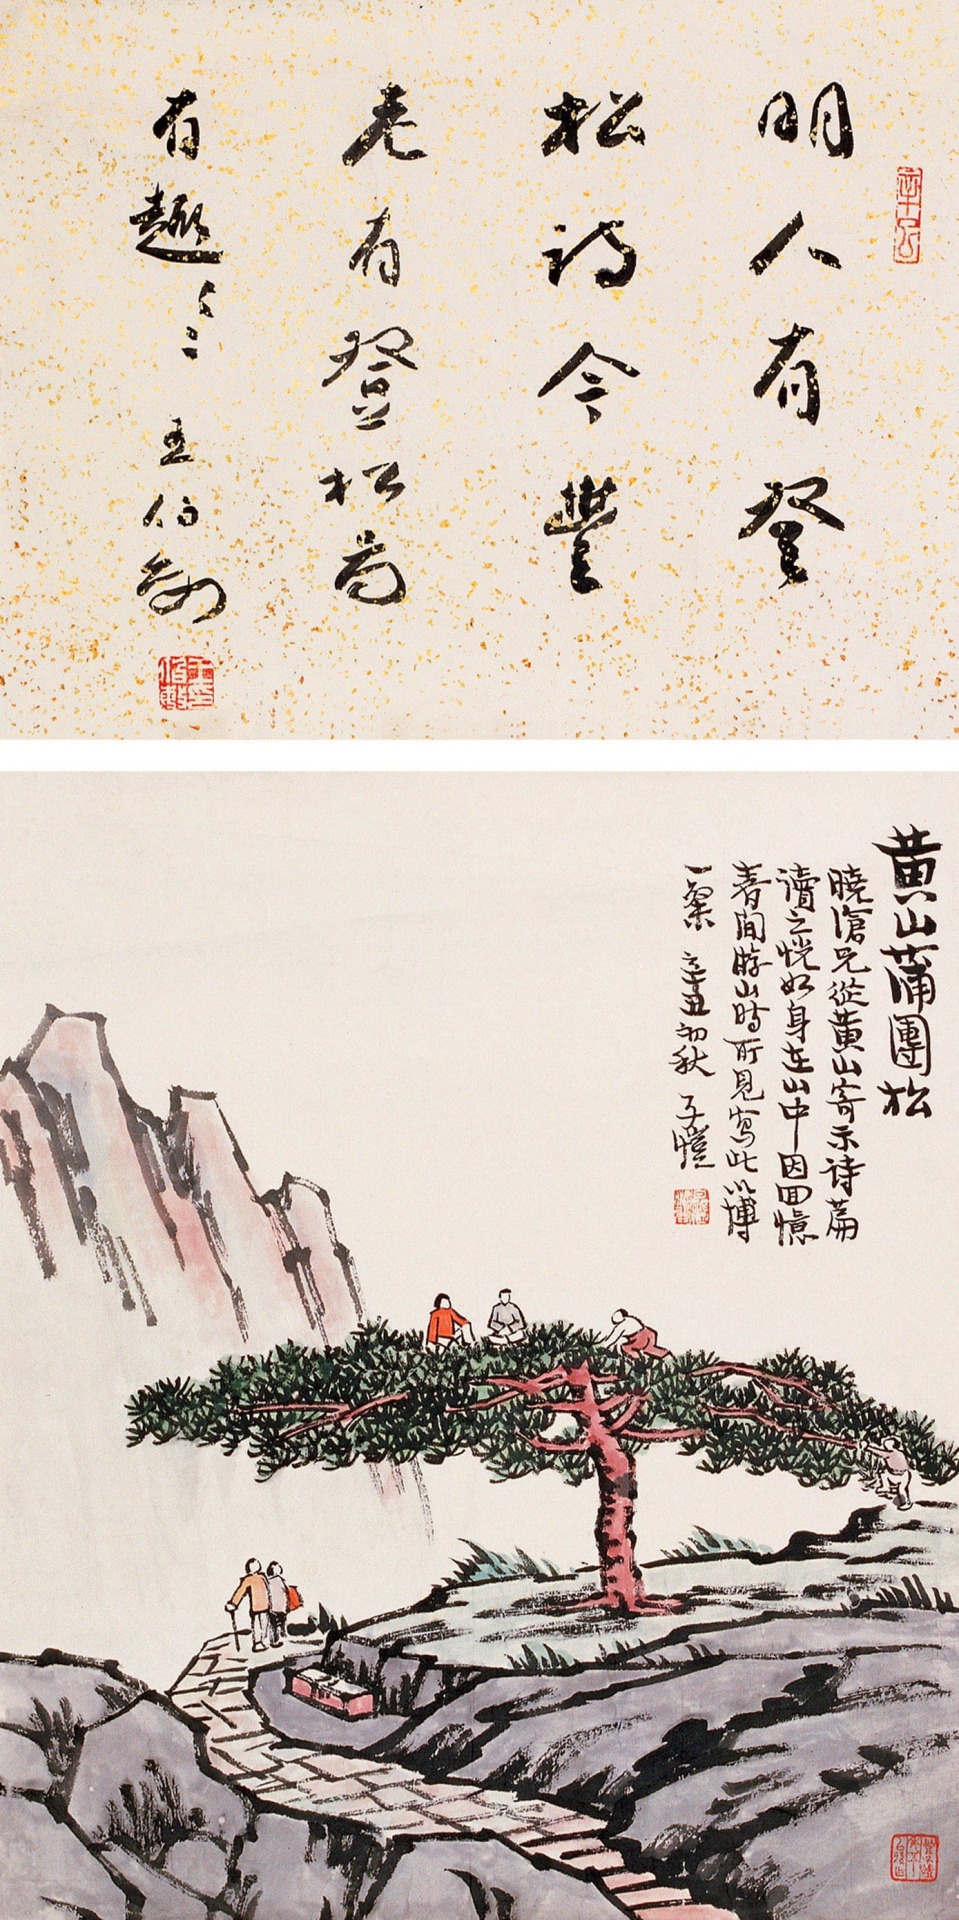 明人有登
松詩今豐
老有登松圖
有趣々々 王伯敏
王伯敏
黄山蒲團松
曉滄兄從黄山寄示詩篇
讀之恍如身在山中因回憶
春間游山時所見寫此以博
一粲 辛丑初秋 子愷